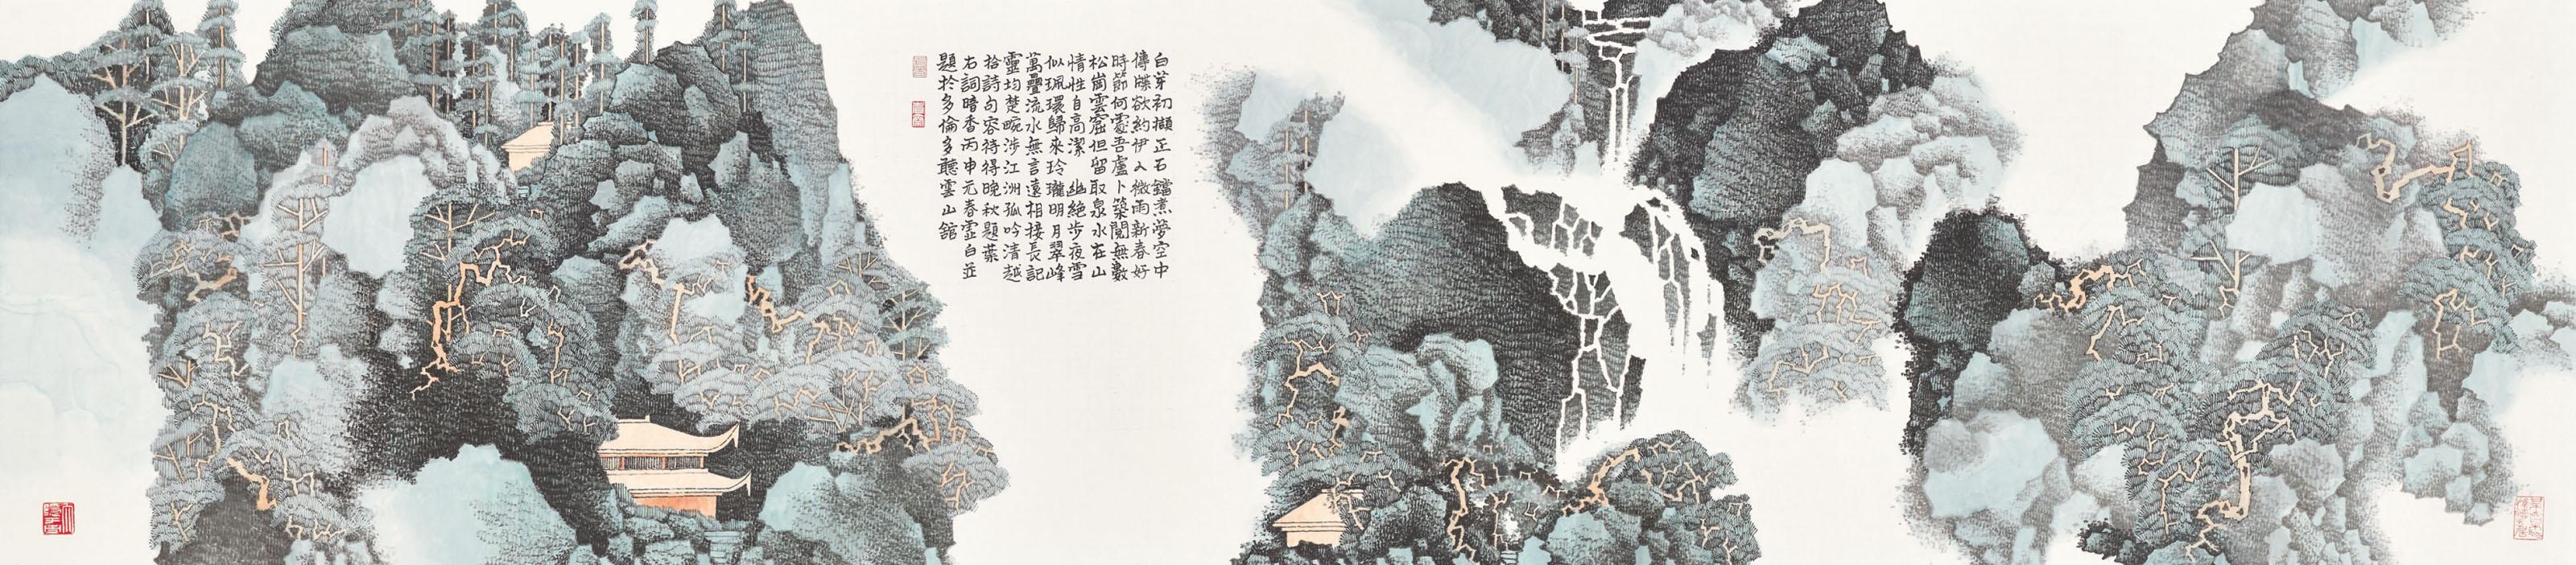 白芽初擷正石鐺煮夢空中
傳牒欲約伊人微雨新春好
時節何處吾廬卜築閱無數
松崗雲窟但留取泉水在山
情性自高潔 幽絕步夜雪
似珮環歸來玲瓏明月翠峰
萬疊流水無言遠相接長記
靈均楚畹涉江洲孤吟清越
拾詩句容待得晚秋題葉
右詞暗香丙申元春靈白並
題於多倫多聽雲山館